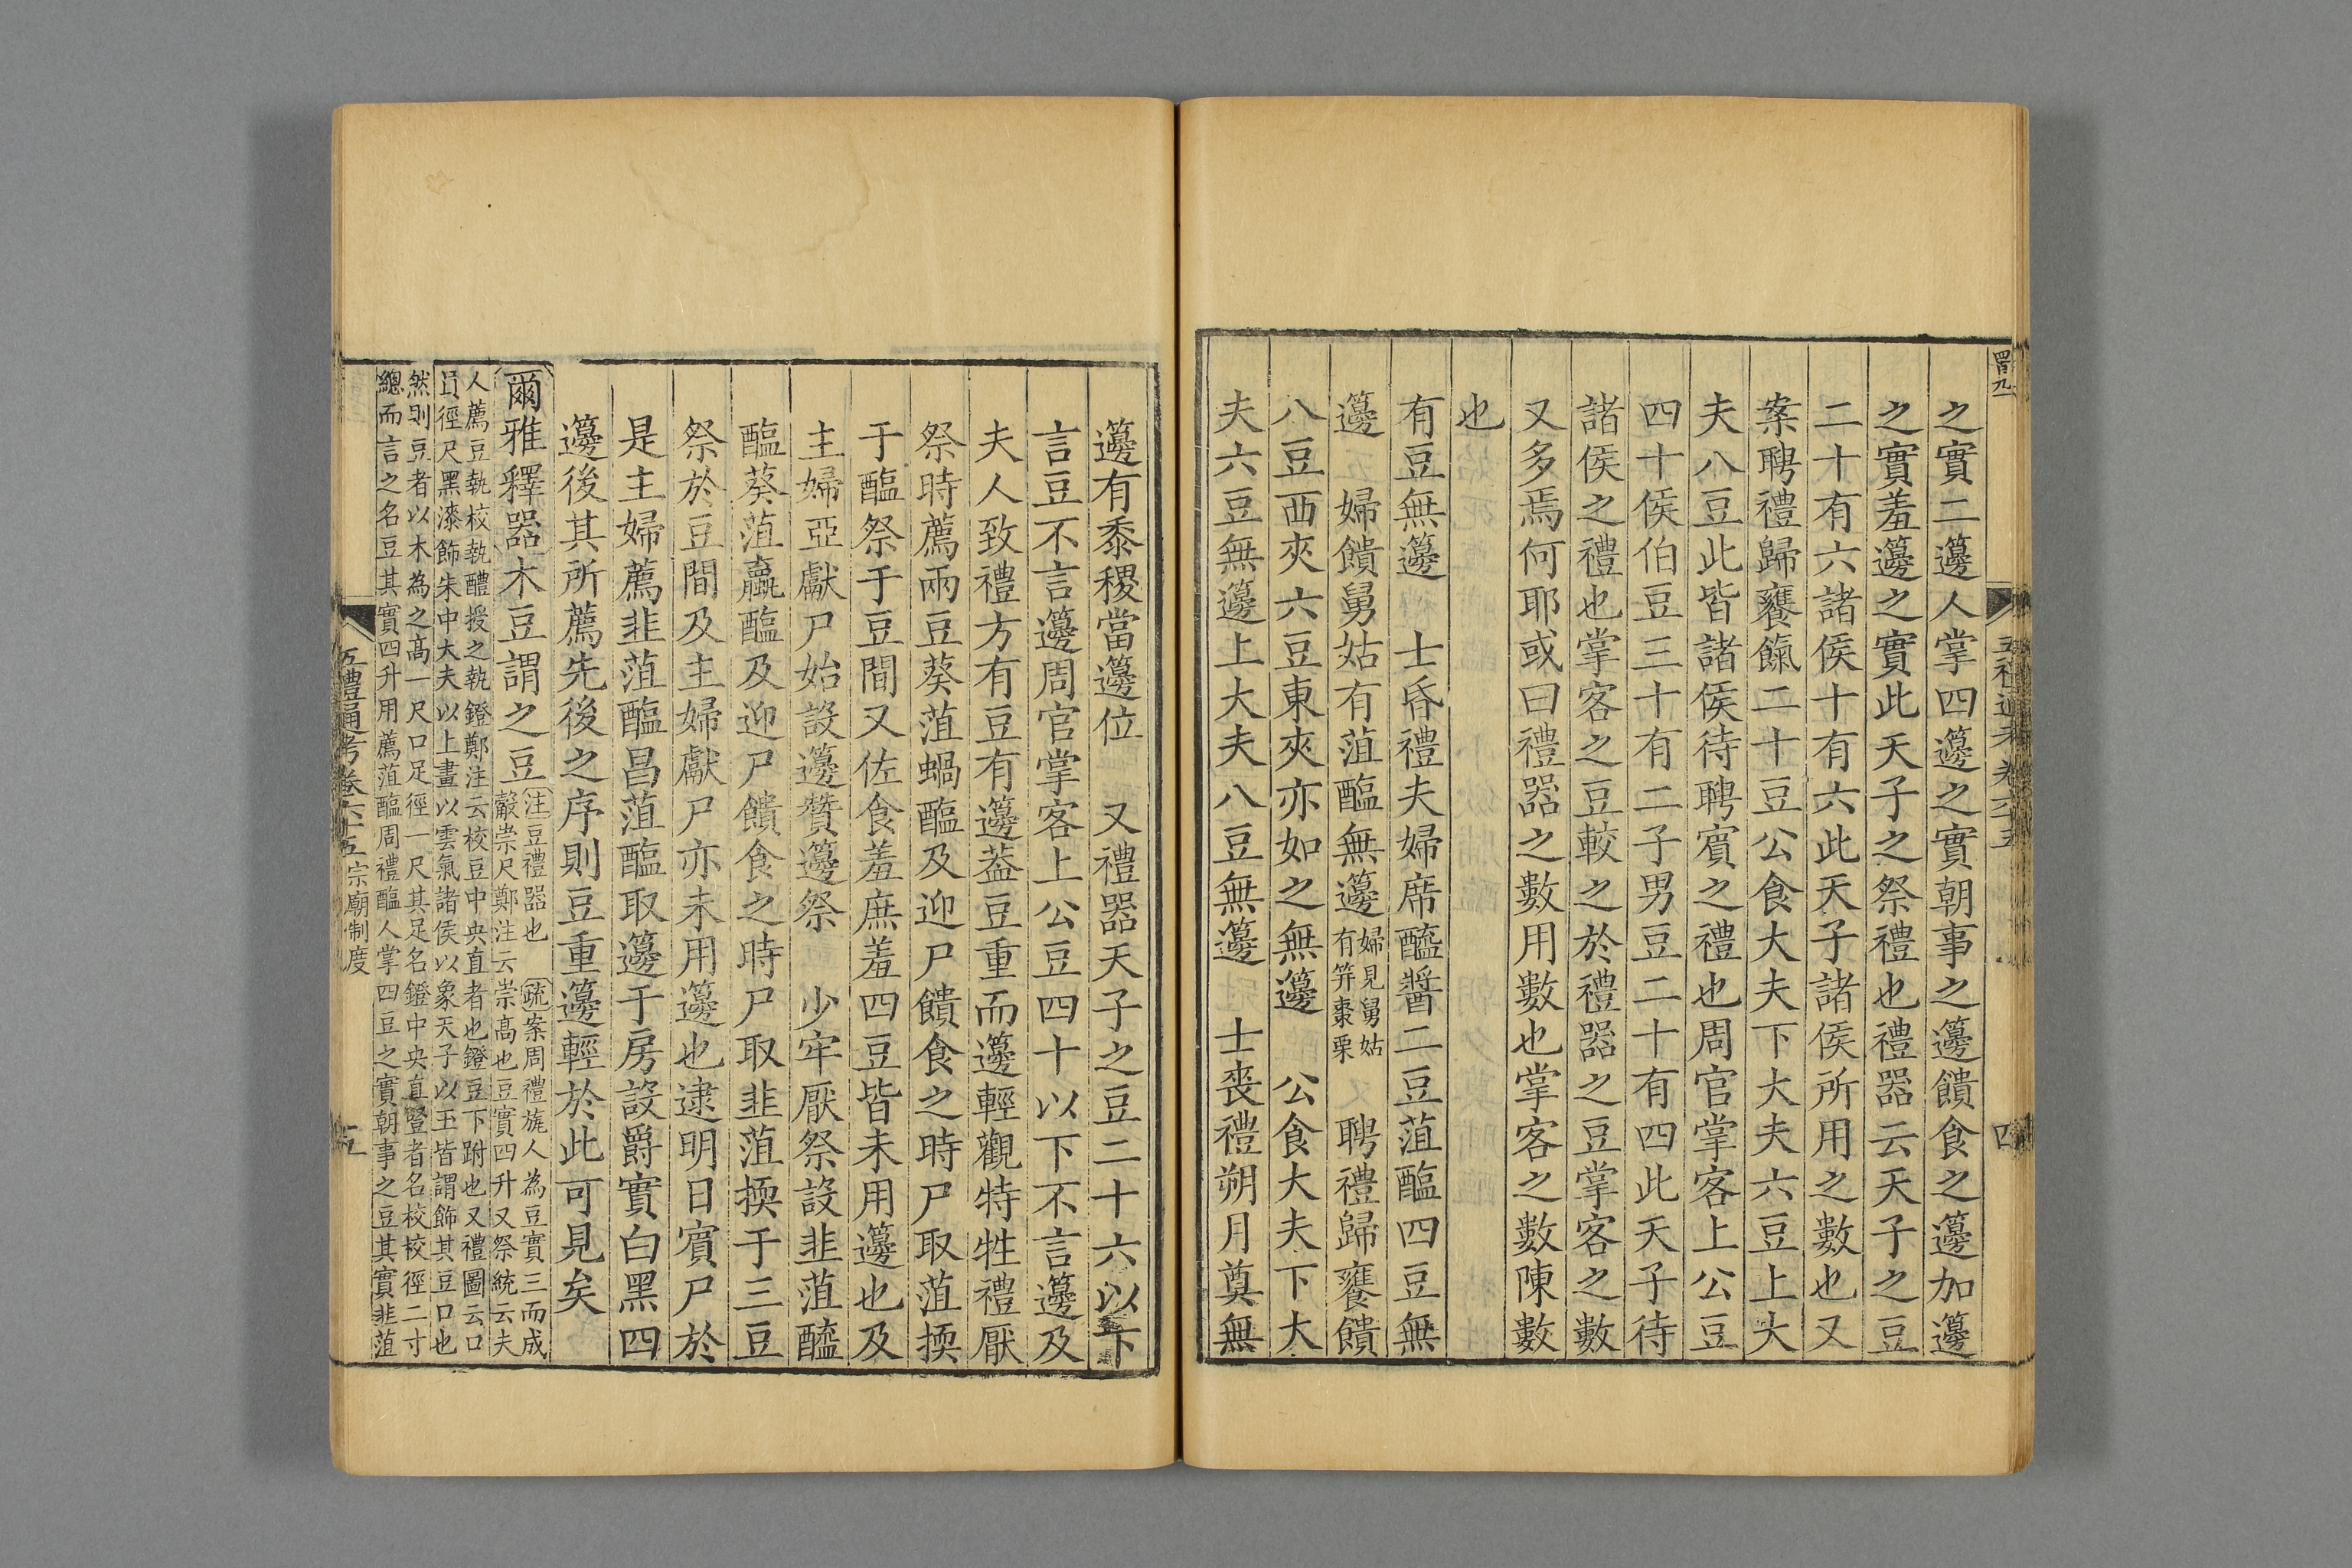 之實二籩人掌四籩之實朝事之籩饋食之籩加籩
之實羞籩之實此天子之祭禮也禮器云天子之豆
二十有六諸侯十有六此天子諸侯所用之數也又
案聘禮歸饔餼二十豆公食大夫下大夫六豆上大
夫八豆此皆諸侯待聘賓之禮也周官掌客上公豆
四十侯伯豆三十有二子男豆二十有四此天子待
諸侯之禮也掌客之豆較之於禮器之豆掌客之數
又多焉何耶或曰禮器之數用數也掌客之數陳數
也
有豆無籩 士昏禮夫婦席醯醬二豆菹醢四豆無
籩 婦饋舅姑有菹醢無籩婦見舅姑有笲棗栗 聘禮歸饔饋
八豆西夾六豆東夾亦如之無籩 公食大夫下大
夫六豆無籩上大夫八豆無籩 士喪禮朔月奠無
籩有黍稷當籩位 又禮器天子之豆二十六以下
言豆不言籩周官掌客上公豆四十以下不言籩及
夫人致禮方有豆有籩葢豆重而籩輕觀特牲禮厭
祭時薦兩豆葵菹蝸醢及迎尸饋食之時尸取菹㨎
于醢祭于豆間又佐食羞庶羞四豆皆未用籩也及
主婦亞獻尸始設籩贊籩祭 少牢厭祭設韭菹醯
醢葵菹蠃醢及迎尸饋食之時尸取韭菹㨎于三豆
祭於豆間及主婦獻尸亦未用籩也逮明日賓尸於
是主婦薦韭菹醢昌菹醢取籩于房設爵實白黑四
籩後其所薦先後之序則豆重籩輕於此可見矣
爾雅釋器木豆謂之豆
注豆禮器也 疏案周禮旊人為豆實三而成
觳崇尺鄭注云崇高也豆實四升又祭統云夫
人薦豆執校執醴授之執鐙鄭注云校豆中央直者也鐙豆下跗也又禮圖云口
員徑尺黑漆飾朱中大夫以上畫以雲氣諸侯以象天子以玉皆謂飾其豆口也
然則豆者以木為之高一尺口足徑一尺其足名鐙中央直豎者名校校徑二寸
總而言之名豆其實四升用薦菹醢周禮醢人掌四豆之實朝事之豆其實韭菹
五禮通考卷六十五 宗廟制度